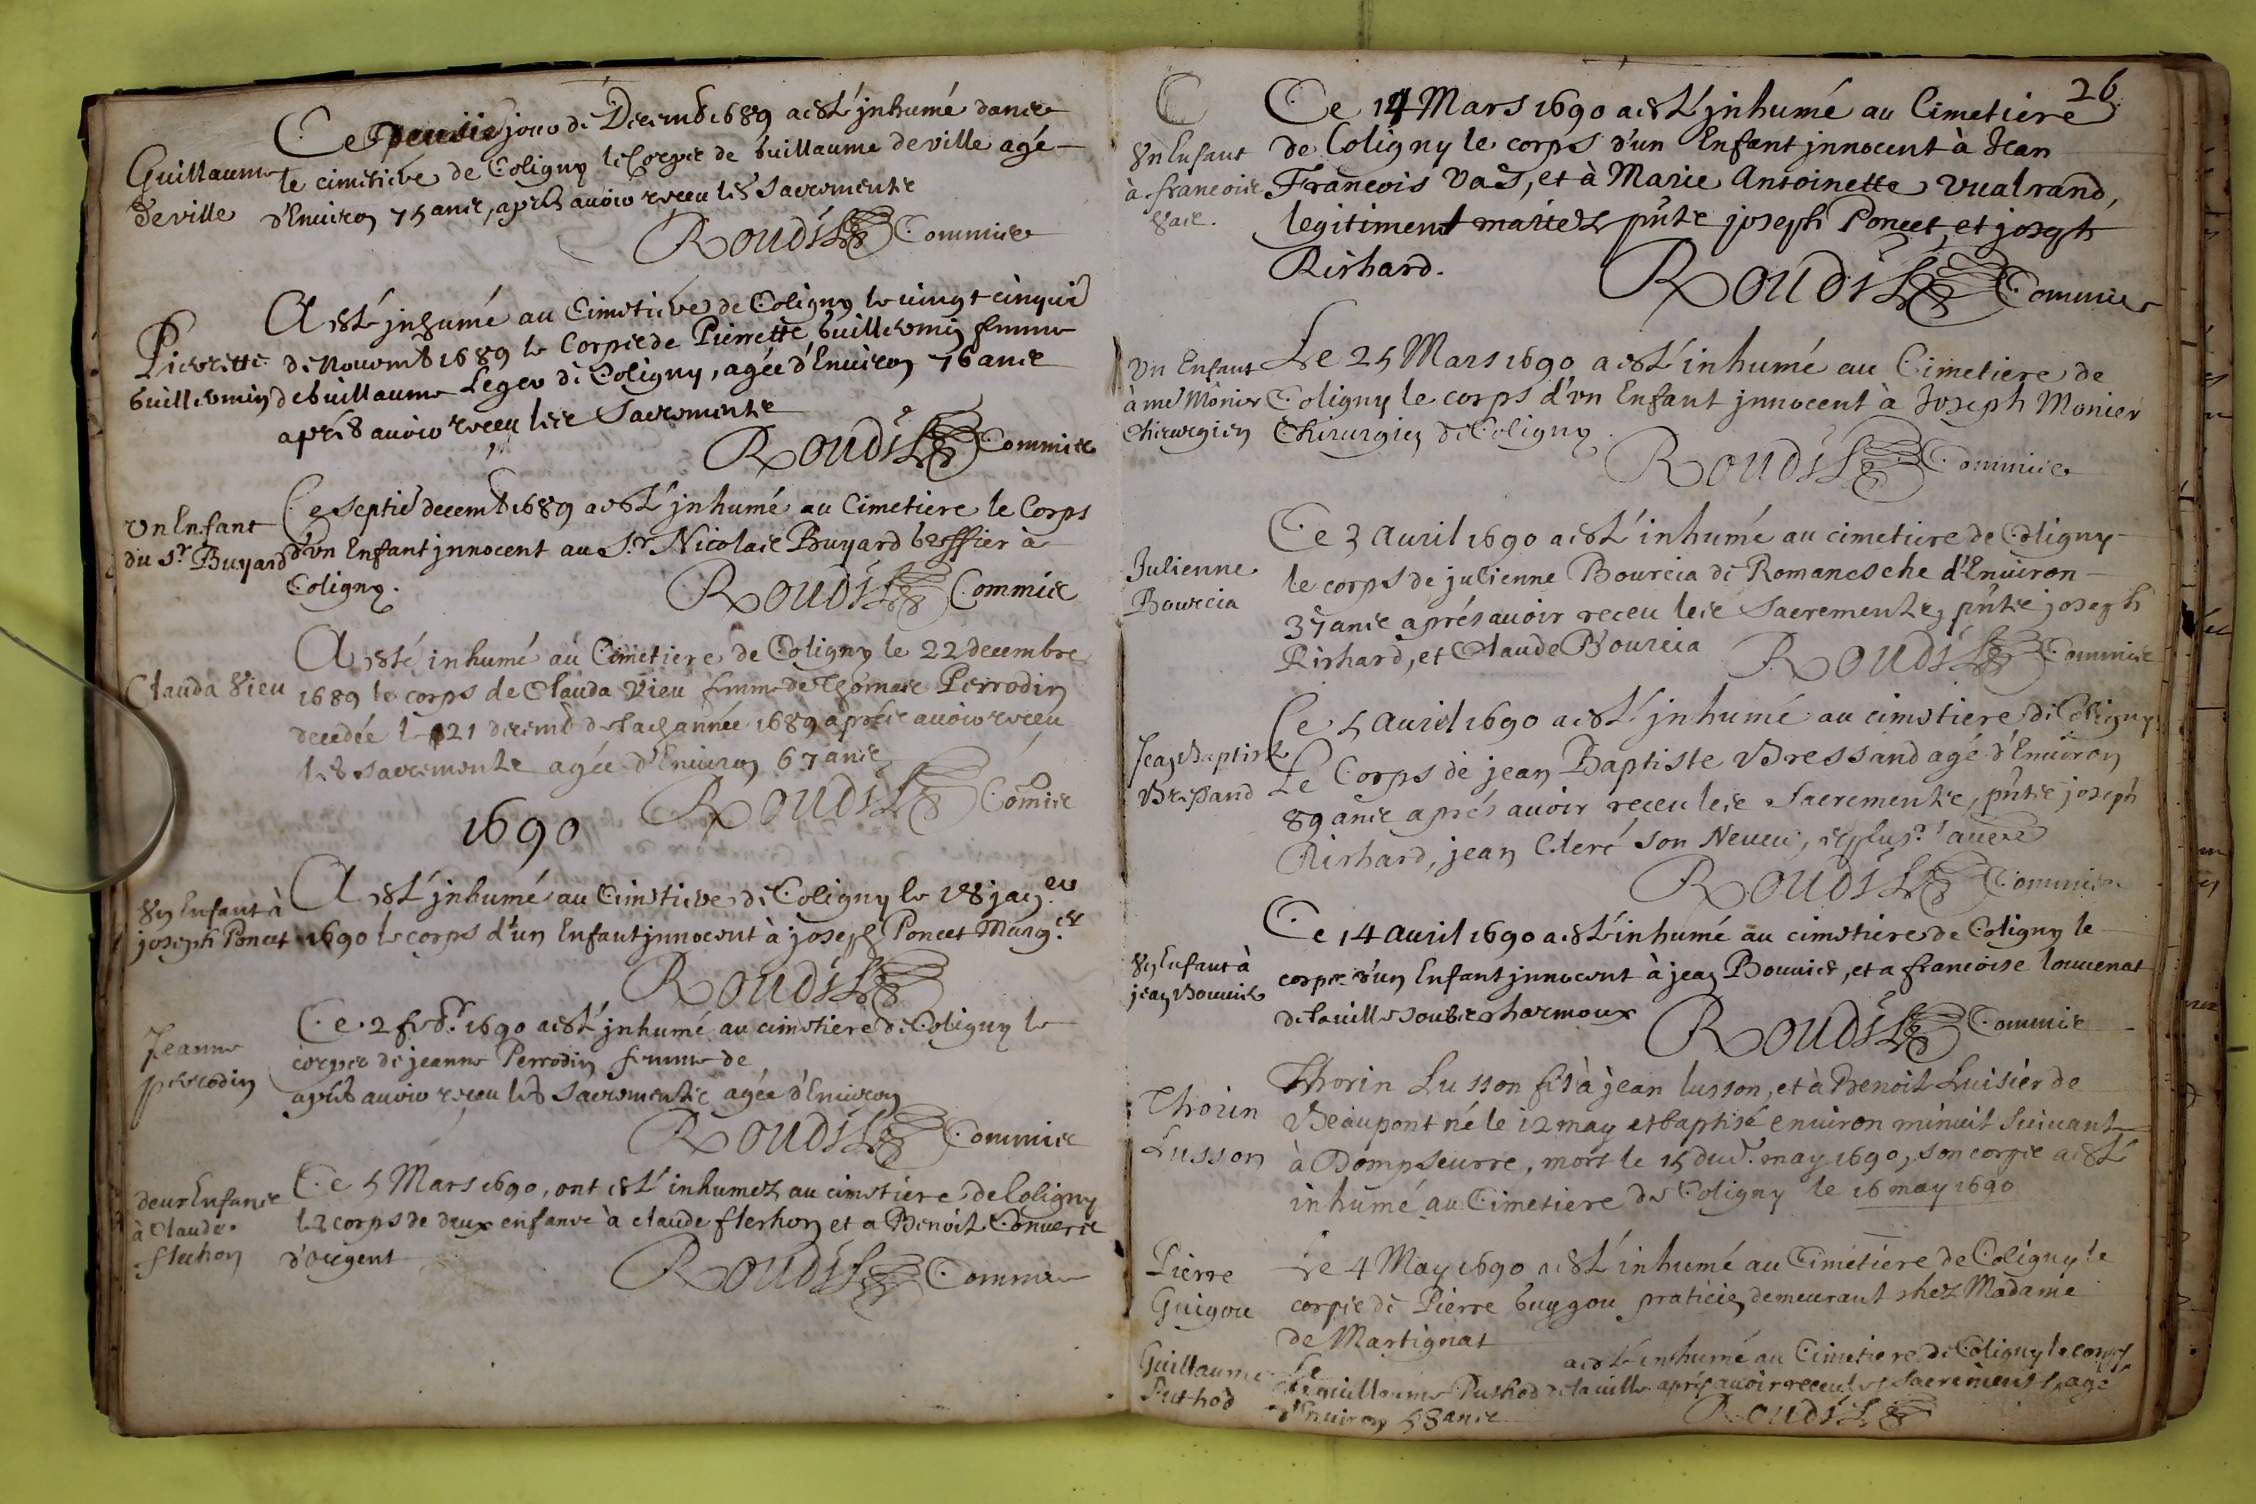 Guillaume
deville
Ce jour de Decemb 1689 a esté jnhumé dans
le cimetiere de Coligny le Corps de Guillaume deville agé
d'Enuiron 75 ans, apres auoir receu les Sacrements
Roudil Commis
Pierrette
Guillermin
A esté jnhumé au Cimetiere de Coligny le uingt cinquié
de Nouemb 1689 le Corps de Pierrette Guillermin femme
de Guillaume Leger de Coligny, agée d'Enuiron 76 ans
aprés auoir receu les Sacrements
Roudil Commis
Vn Enfant
du Sr. Buyard
Ce septié decemb 1689 a esté jnhumé au Cimetiere le Corps
d'vn Enfant jnnocent au Sr. Nicolas Buyard Greffier à
Coligny.
Roudil Commis
Clauda Vieu
A esté inhumé au Cimetiere de Coligny le 22 decembre
1689 le corps de Clauda Vieu femme de Thomas Perrodin
decedée le 21 decemb de lad année 1689 aprés auoir receu
les sacrements agée d'Enuiron 67 ans
Roudil Comis
1690
Vn Enfant à
joseph Poncet
A esté jnhumé au Cimetiere de Coligny le 28 jan.er
1690 le corps d'un Enfant jnnocent à joseph Poncet Marg.er
Roudil
Jeanne
perrodin
Ce 2 febr. 1690 a esté jnhumé au cimetiere de Coligny le
corps de jeanne Perrodin femme de
aprés auoir receu les Sacrements agée d'Enuiron
Roudil Commis
deux Enfans
à Claude
flechon
Ce 5 Mars 1690, ont esté inhumez au cimetiere de Coligny
les corps de deux enfans à claude flechon et a Benoite Conuers
d'origent
Roudil Commis
26
Vn Enfant
à francois
Vas.
Ce 14 Mars 1690 a esté jnhumé au Cimetiere
de Coligny le corps d'un Enfant jnnocent à Jean
Francois Vas, et à Marie Antoinette Vualrand,
legitiment mariez pnts joseph Poncet, et joseph
Richard.
Roudil Commis
Vn Enfant
à me Mônier
Chirurgien
Le 25 Mars 1690 a esté inhumé au Cimetiere de
Coligny le corps d'vn Enfant jnnocent à Joseph Monier
Chirurgien de Coligny.
Roudil Commis
Julienne
Bourcia
Ce 3 auril 1690 a esté inhumé au cimetiere de Coligny
le corps de julienne Bourcia de Romanesche d'Enuiron
37 ans aprés auoir receu les Sacrements, pnts joseph
Richard, et Claude Bourcia
Roudil Commis
Jean Baptiste
Bressand
Ce 5 auril 1690 a esté jnhumé au cimetiere de Coligny
Le Corps de jean Baptiste Bressand agé d'Enuiron
89 ans aprés auoir receu les Sacrements, pnts joseph
Richard, jean Cleré son Neueu, et plus.rs autres
Roudil Commis
Vn Enfant à
jean Bouuier
Ce 14 auril 1690 a esté inhumé au cimetiere de Coligny le
corps d'un Enfant jnnocent à jean Bouuier, et a francoise louuenat
de la ville soubs charmoux
Roudil Commis
Thorin
Lusson
Thorin Lusson fils à jean lusson, et à Benoite Luisier de
Beaupont né le 12 may et baptisé enuiron minuit suiuant
à Dompseurre, mort le 15 dud. may 1690, son corps a esté
inhumé au Cimetiere de Coligny le 16 may 1690
Pierre
Guigou
Le 4 May 1690 a esté inhumé au Cimetiere de Coligny le
corps de Pierre Guygou praticien demeurant chez Madame
de Martignat
Guillaume
Puthod
Le a esté inhumé au Cimetiere de Coligny le corps
de guillaume Puthod de la uille aprés auoir receu les Sacrements agé
d'Enuiron 58 ans
Roudil